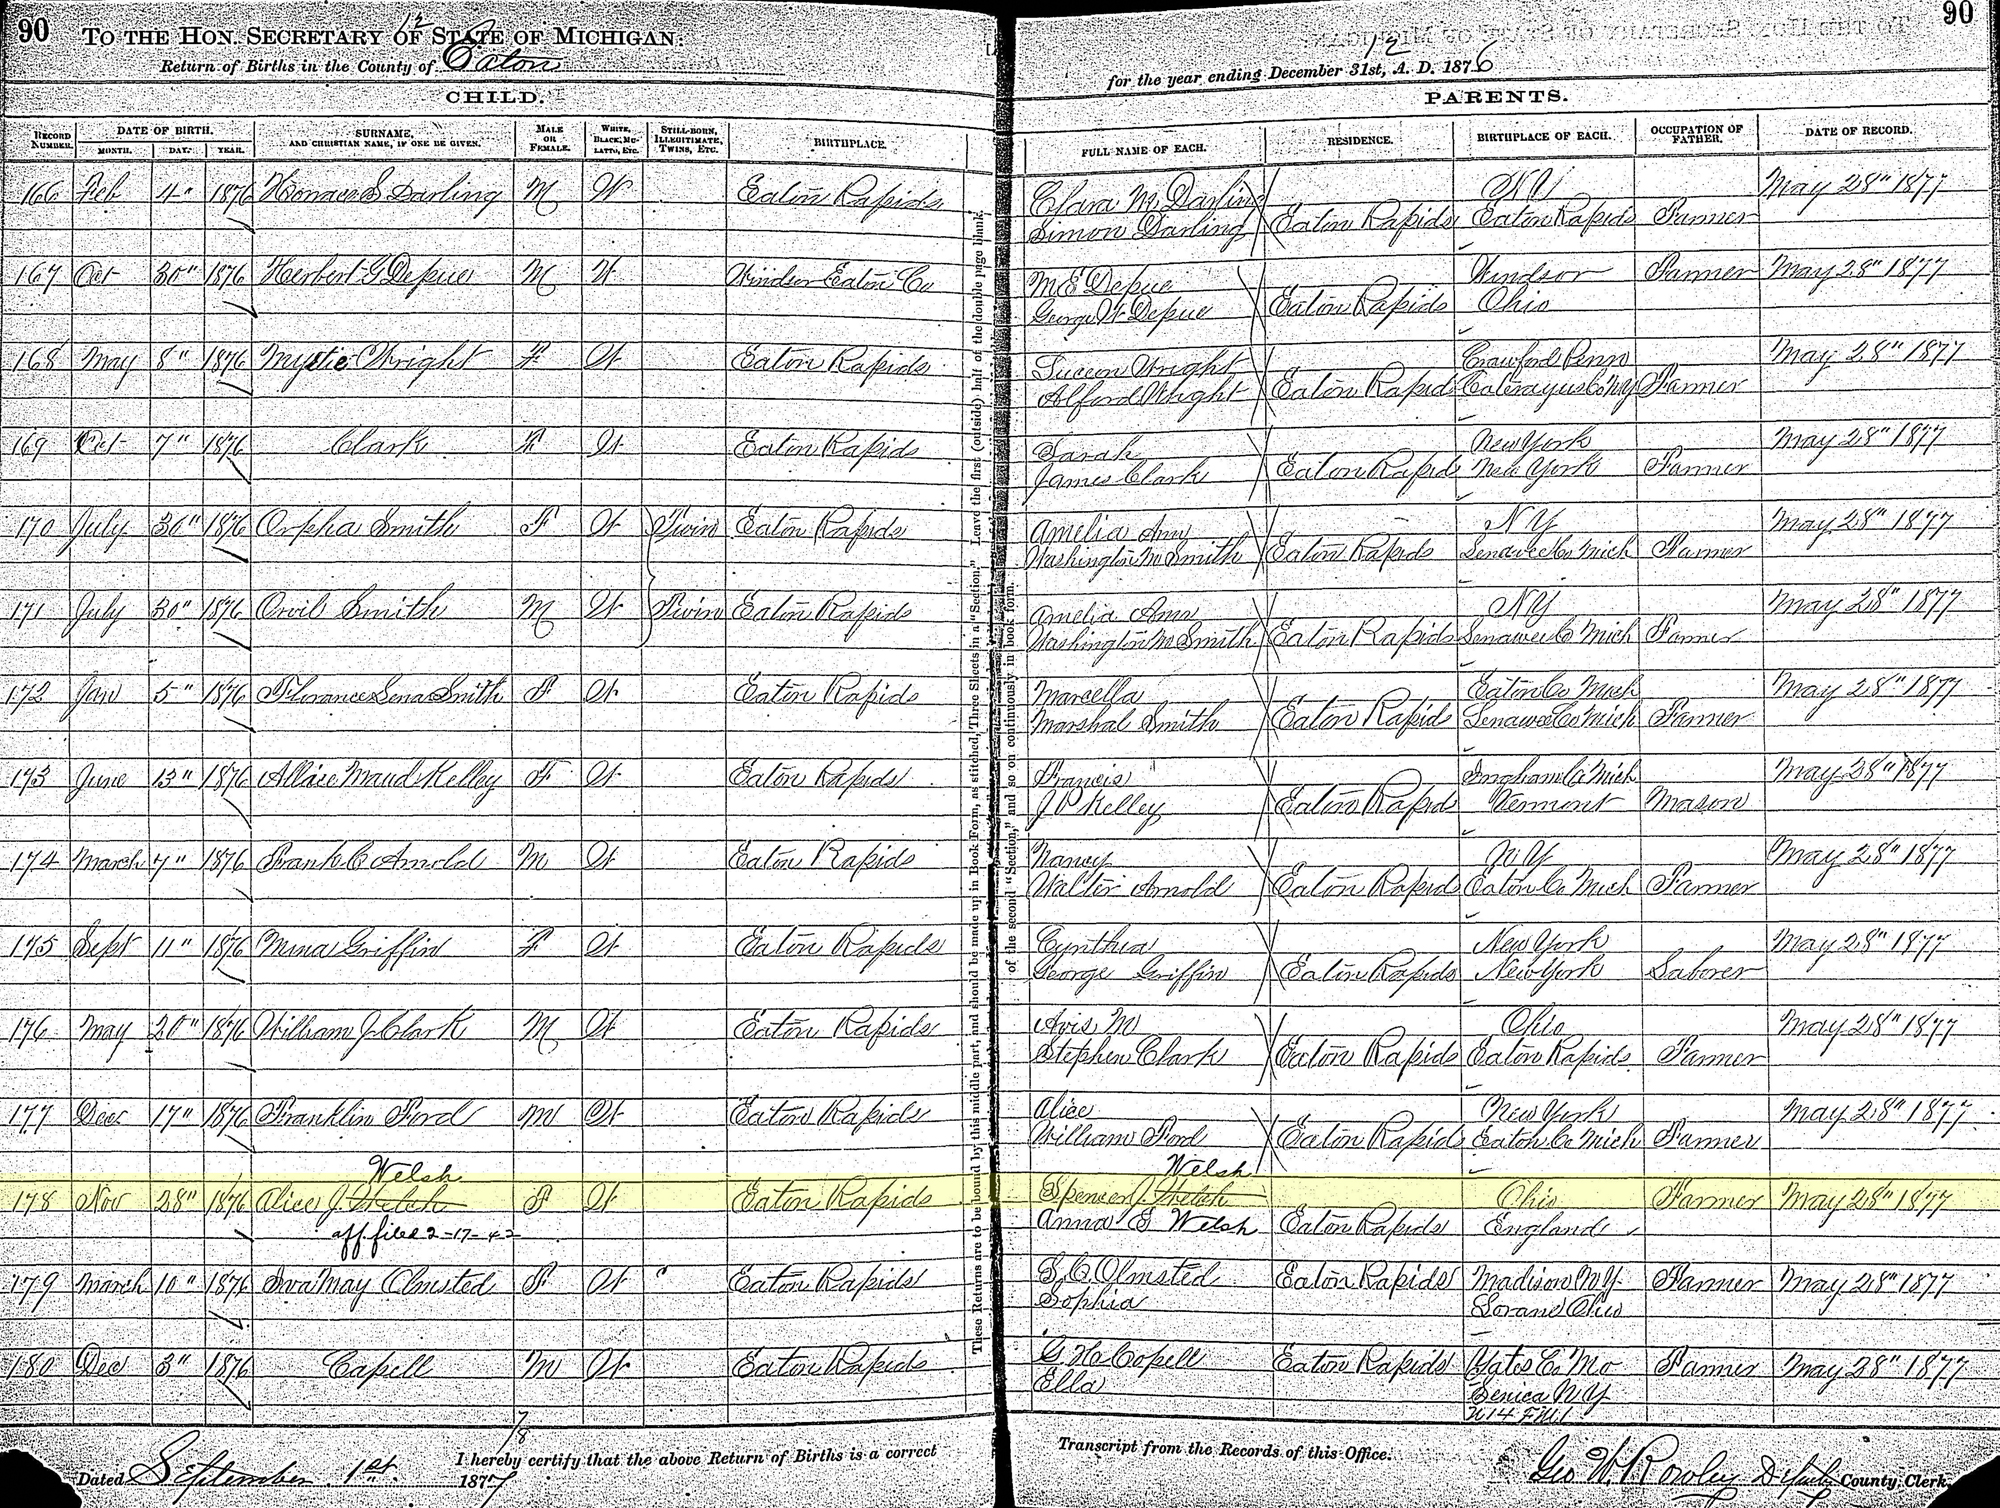 90
12
TO THE HON. SECRETARY OF STATE OF MICHIGAN:
Return of Births in the County of Eaton
CHILD.
RECORD NUMBER. DATE OF BIRTH. MONTH. DAY. YEAR. SURNAME, AND CHRISTIAN NAME, IF ONE BE GIVEN. MALE OR FEMALE. WHITE, BLACK, MULATTO, ETC. STILL-BORN, ILLEGITIMATE, TWINS, ETC. BIRTHPLACE.
166 Feb 4" 1876 Darling M W Eaton Rapids
167 Oct 30" 1876 Herbert G Depue M W Windsor Eaton Co
168 May 8" 1876 Mystie Wright F W Eaton Rapids
169 Oct 7" 1876 Clark F W Eaton Rapids
170 July 30" 1876 Orpha Smith F W Twin Eaton Rapids
171 July 30" 1876 Orvil Smith M W Twin Eaton Rapids
172 Jan 5" 1876 Florance Lena Smith F W Eaton Rapids
173 June 13" 1876 Allie Maud Kelley F W Eaton Rapids
174 March 7" 1876 Frank C Arnold M W Eaton Rapids
175 Sept 11" 1876 Mina Griffin F W Eaton Rapids
176 May 20" 1876 William J Clark M W Eaton Rapids
177 Dec 17" 1876 Franklin Ford M W Eaton Rapids
Welsh
178 Nov 28" 1876 Alice J. F W Eaton Rapids
aff. filed 2-17-42
179 March 10" 1876 Iva May Olmsted F W Eaton Rapids
180 Dec 3" 1876 Capell M W Eaton Rapids
Dated September 1st 1877
I hereby certify that the above Return of Births is a correct
These Returns are to be bound by this middle part, and should be made up in Book Form, as stitched, Three Sheets in a "Section." Leave the first (outside) half of the double page blank,
of the second "Section," and so on continuously in book form.
90
12
for the year ending December 31st, A. D. 1876
PARENTS.
FULL NAME OF EACH. RESIDENCE. BIRTHPLACE OF EACH. OCCUPATION OF FATHER. DATE OF RECORD.
Clara M. Darling NY May 28" 1877
Simon Darling Eaton Rapids Eaton Rapids Farmer
M E Depue Windsor Farmer May 28" 1877
George W Depue Eaton Rapids Ohio
Wright Crawford Penn May 28" 1877
Alford Wright Eaton Rapids Farmer
Sarah New York May 28" 1877
James Clark Eaton Rapids New York Farmer
Amelia Ann NY May 28" 1877
Washington M Smith Eaton Rapids Lenawee Co Mich Farmer
Amelia Ann NY May 28" 1877
Washington M Smith Eaton Rapids Lenawee Co Mich Farmer
Marcella Eaton Co Mich May 28" 1877
Marshal Smith Eaton Rapids Lenawee Co Mich Farmer
Francis Ingham Co Mich May 28" 1877
J P Kelley Eaton Rapids Vermont Mason
Nancy NY May 28" 1877
Walter Arnold Eaton Rapids Eaton Co Mich Farmer
Cynthia New York May 28" 1877
George Griffin Eaton Rapids New York Laborer
Avis M Ohio May 28" 1877
Stephen Clark Eaton Rapids Eaton Rapids Farmer
Alice New York May 28" 1877
William Ford Eaton Rapids Eaton Co Mich Farmer
Welsh
Spencer J. Ohio Farmer May 28" 1877
Anna E Welsh Eaton Rapids England
S. C Olmsted Eaton Rapids Madison N.Y. Farmer May 28" 1877
Sophia Ohio
G H Copell Eaton Rapids Yates Co Farmer May 28" 1877
Ella Seneca N.Y
Transcript from the Records of this Office.
Geo W. Rowley Deputy County Clerk.